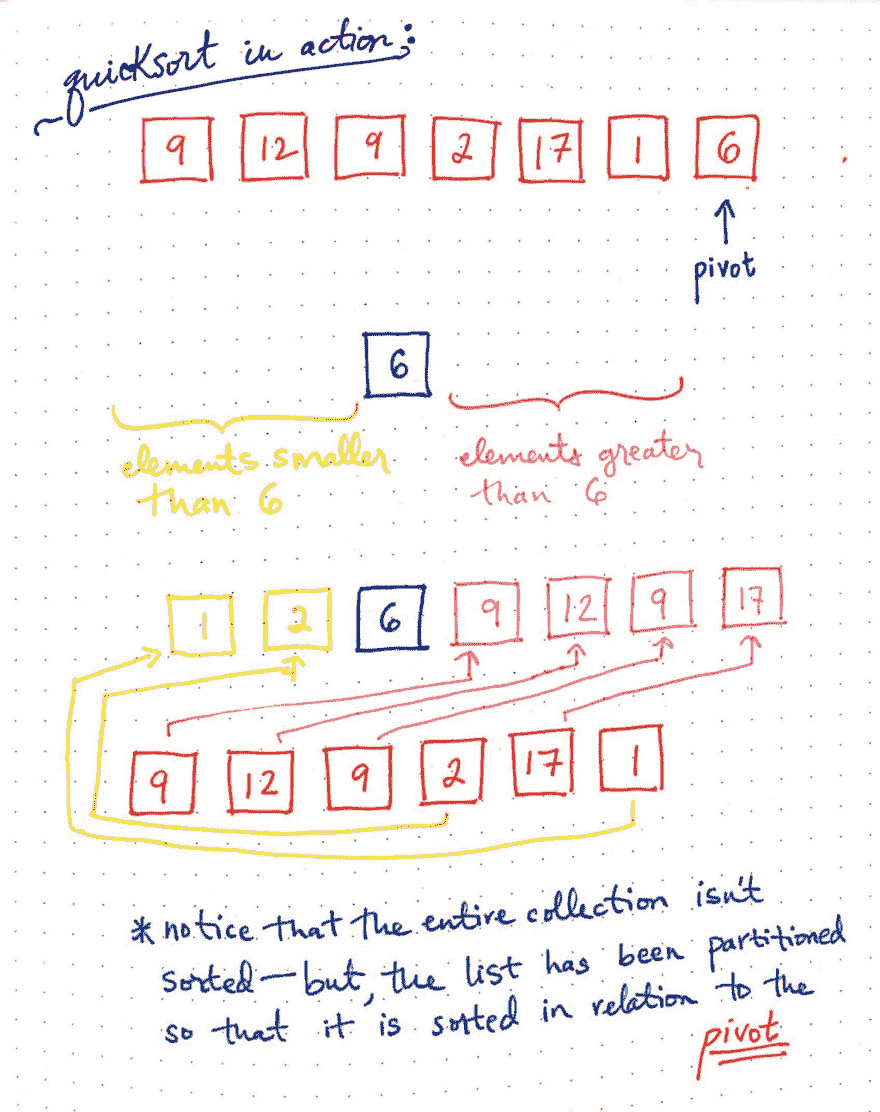 quicksort in action:
9 12 9 2 17 1 6
pivot
6
elements smaller
than 6
elements greater
than 6
1 2 6 9 12 9 17
9 12 9 2 17 1
* notice that the entire collection isn't
sorted — but, the list has been partitioned
so that it is sorted in relation to the
pivot